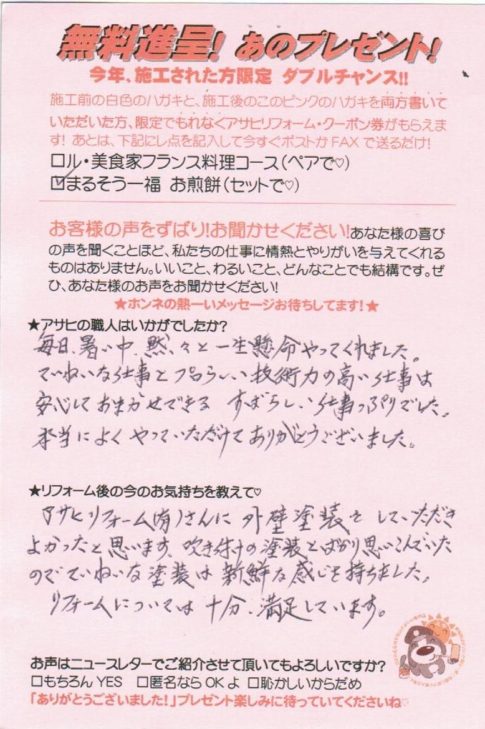 無料進呈! あのプレゼント!
今年、施工された方限定 ダブルチャンス!!
施工前の白色のハガキと、施工後のこのピンクのハガキを両方書いて
いただいた方、限定でもれなくアサヒリフォーム・クーポン券がもらえま
す! あとは、下記にレ点を記入して今すぐポストかFAXで送るだけ!
□ル・美食家フランス料理コース(ペアで♡)
☑まるそう一福 お煎餅(セットで♡)
お客様の声をずばり!お聞かせください!あなた様の喜び
の声を聞くことほど、私たちの仕事に情熱とやりがいを与えてくれる
ものはありません。いいこと、わるいこと、どんなことでも結構です。ぜ
ひ、あなた様のお声をお聞かせください!
★ホンネの熱ーいメッセージお待ちしてます!★
★アサヒの職人はいかがでしたか?
毎日、暑い中、黙々と一生懸命やってくれました。
ていねいな仕事とプロらしい技術力の高い仕事は
安心しておまかせできる すばらしい仕事っぷりでした。
本当によくやっていただけてありがとうございました。
★リフォーム後の今のお気持ちを教えて♡
アサヒリフォーム(有)さんに外壁塗装をしていただき
よかったと思います。吹き付けの塗装とばかり思いこんでいた
のでていねいな塗装は新鮮な感じを持ちました。
リフォームについては十分、満足しています。
お声はニュースレターでご紹介させて頂いてもよろしいですか?
□もちろんYES □匿名ならOKよ □恥かしいからだめ
「ありがとうございました!」プレゼント楽しみに待っていてくださいね♡